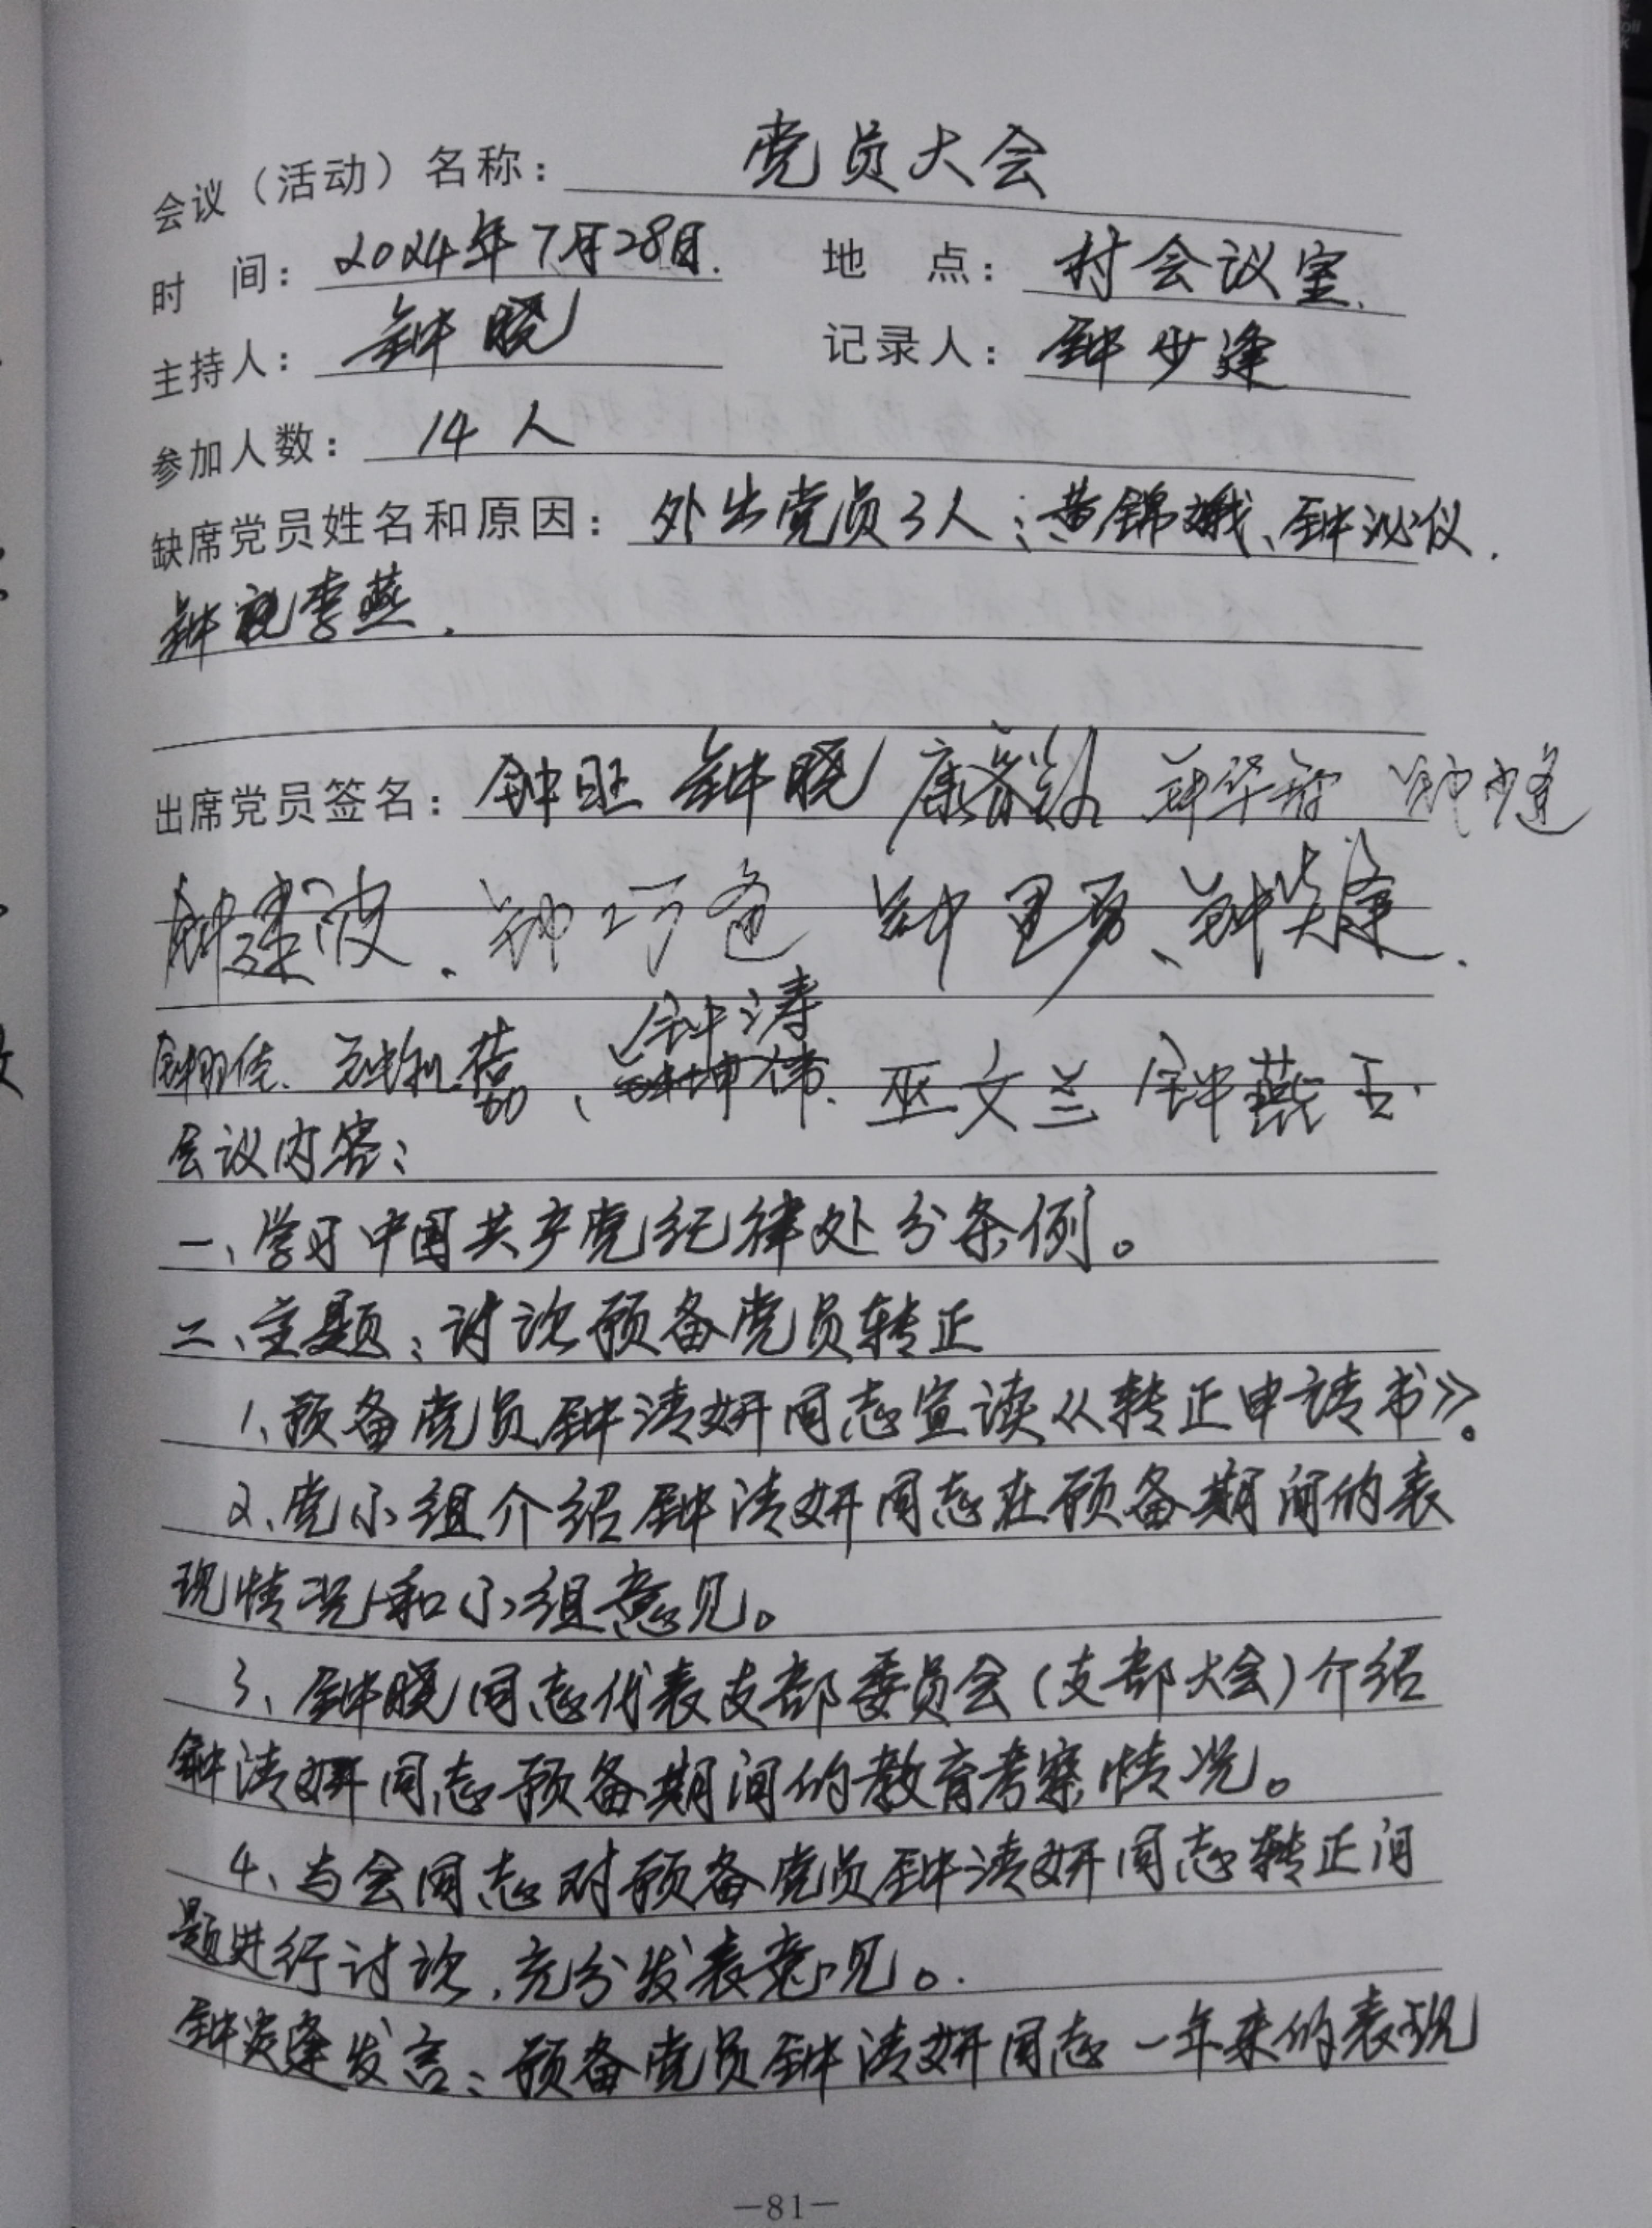 会议（活动）名称：党员大会
时 间：2024年7月28日. 地 点：村会议室.
主持人：钟晓 记录人：钟少逢
参加人数：14人
缺席党员姓名和原因：外出党员3人：黄锦娥、钟泌仪.
钟 李燕.
出席党员签名：钟旺 钟晓 康 钟华 钟少逢
钟建波. 钟巧 钟 勇、钟 逢.
钟 、钟涛
钟 、钟坤伟. 巫文兰 钟燕玉.
会议内容：
一、学习中国共产党纪律处分条例。
二、主题：讨论预备党员转正
1、预备党员钟清妍同志宣读《转正申请书》。
2、党小组介绍钟清妍同志在预备期间的表
现情况和小组意见。
3、钟晓同志代表支部委员会(支部大会)介绍
钟清妍同志预备期间的教育考察情况。
4、与会同志对预备党员钟清妍同志转正问
题进行讨论，充分发表意见。
钟 逢发言：预备党员钟清妍同志一年来的表现
—81—